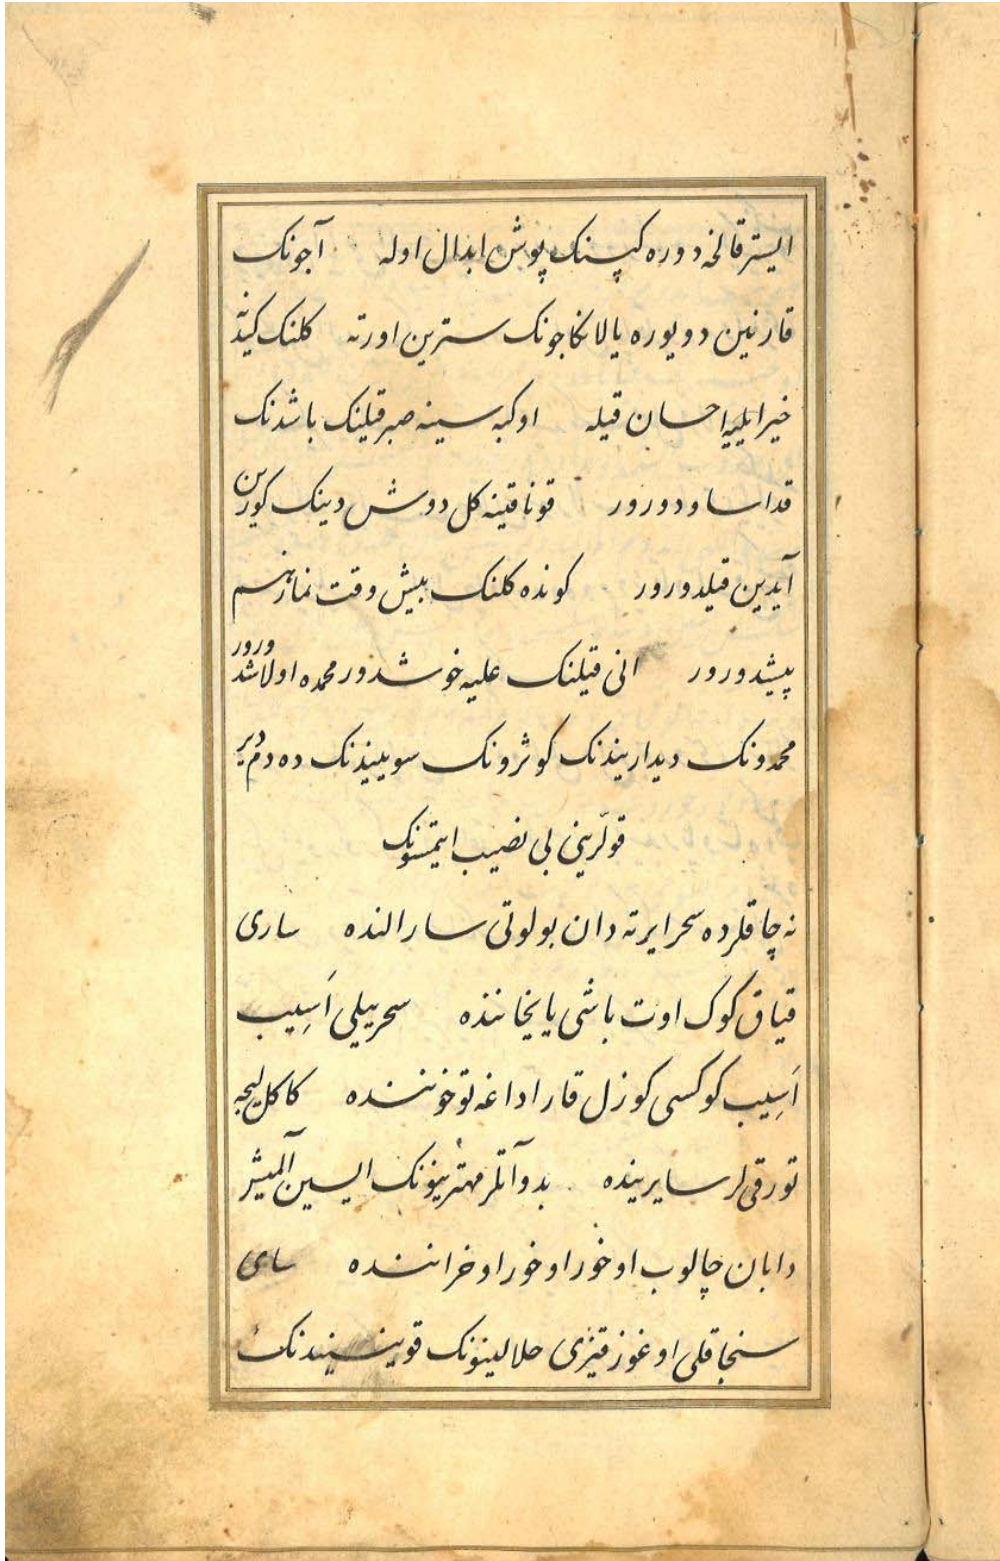 ایستر قالخه دوره کپنک پوش ابدال اوله آجونک
قارنین دویوره یالانکاجونک سترین اورته کلنک کیدنه
خیر ایلیه احسان قیله اوکبه سینه صبر قیلینک باشدنک
قداسا ودورور قوناقینه کل دوش دینک کورین
آیدین قیلدورور کونده کلنک بیش وقت نمازینم
پیشدورور انی قیلنک علیه خوشدور محمده اولاشدورور
محمدونک دیداریندنک کوثرونک سوییندنک ده دم دیر
قولرینی بی نصیب ایتمسونک
نه چاقلرده سحر ایرته دان بولوتی سارالنده ساری
قیاق کوک اوت باشی یایخاننده سحر ییلی اَسِیب
اَسِیب کوکسی کوزل قارا داغه توخوننده کاکللیجه
تورقی لر سایرینده بدو آتلر مهترینونک ایسین آلمیش
دابان چالوب اوخور اوخور اوخراننده سای
سنجاقلی اوغوز قیزی حلالینونک قوینسیندنک